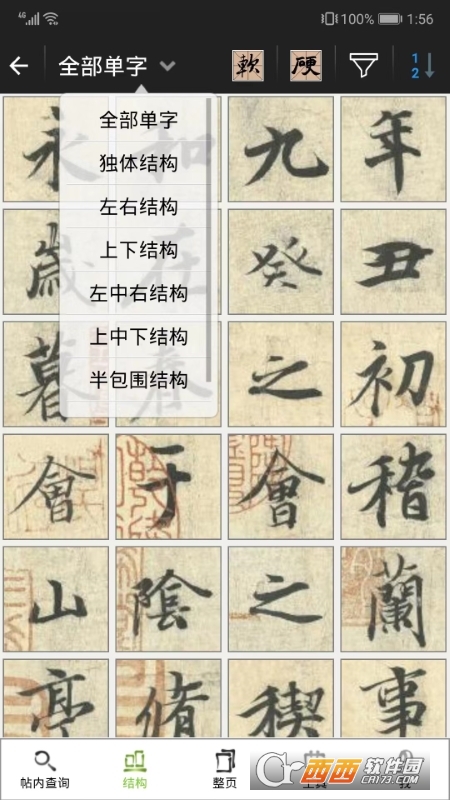 4G 100% 1:56
全部单字 軟 硬 1 2
全部单字
独体结构
左右结构
上下结构
左中右结构
上中下结构
半包围结构
永 和 九 年
歲 在 癸 丑
暮 春 之 初
會 于 會 稽
山 陰 之 蘭
亭 脩 稧 事
帖内查询 结构 整页 我
西西软件园
CR173.com